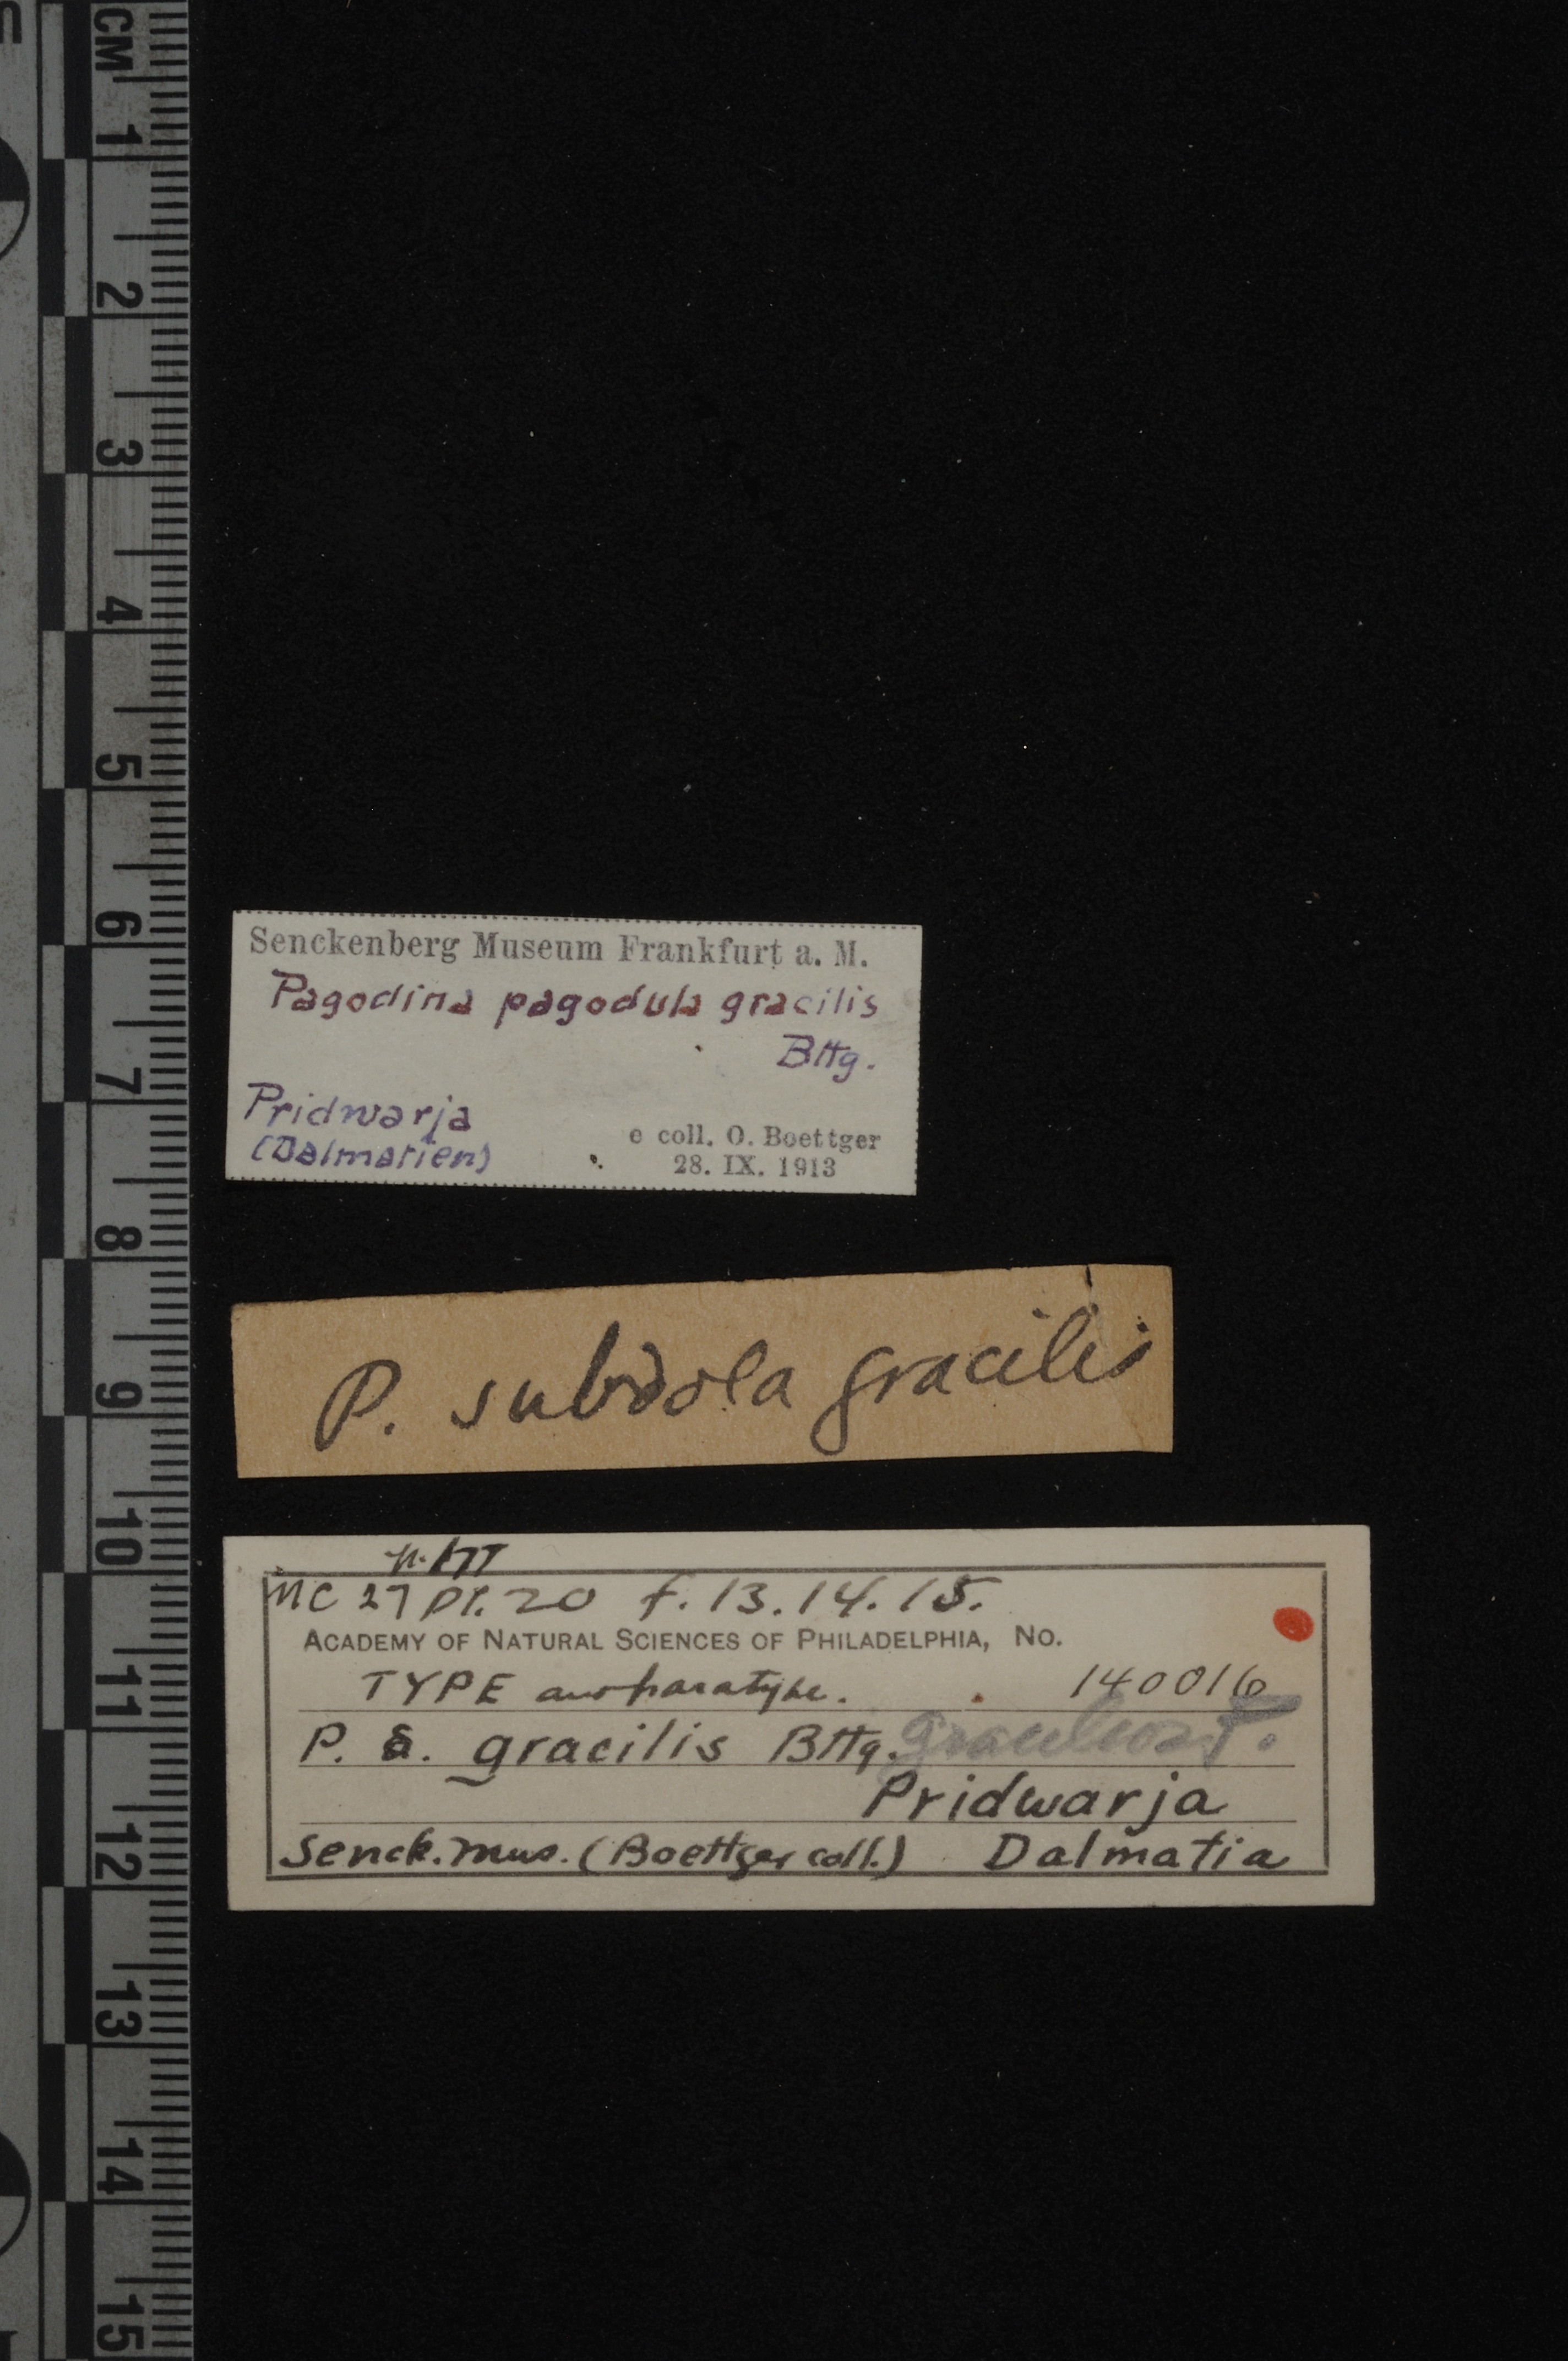 CM 1 2 3 4 5 6 7 8 9 10 11 12 13 14 15
Senckenberg Museum Frankfurt a. M.
Pagodina pagodula gracilis
Bttg.
Pridwarja
(Dalmatien)
e coll. O. Boettger
28. IX. 1913
P. subdola gracilis
p. 177
MC 27 pl. 20 f. 13. 14. 15.
ACADEMY OF NATURAL SCIENCES OF PHILADELPHIA, No.
TYPE paratype. 140016
P. s. gracilis Bttg.
Pridwarja
Senck. Mus. (Boettger coll.) Dalmatia